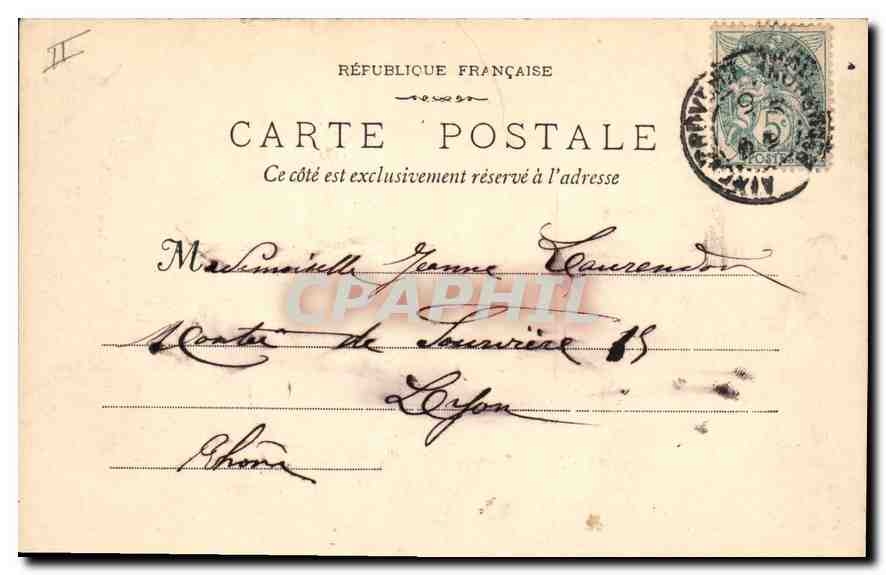 II
RÉPUBLIQUE FRANÇAISE
CARTE POSTALE
Ce côté est exclusivement réservé à l'adresse
Mademoiselle Jeanne Laurendon
CPAPHIL
Montée de Fourvière 15
Lyon
Rhône
5c
POSTES